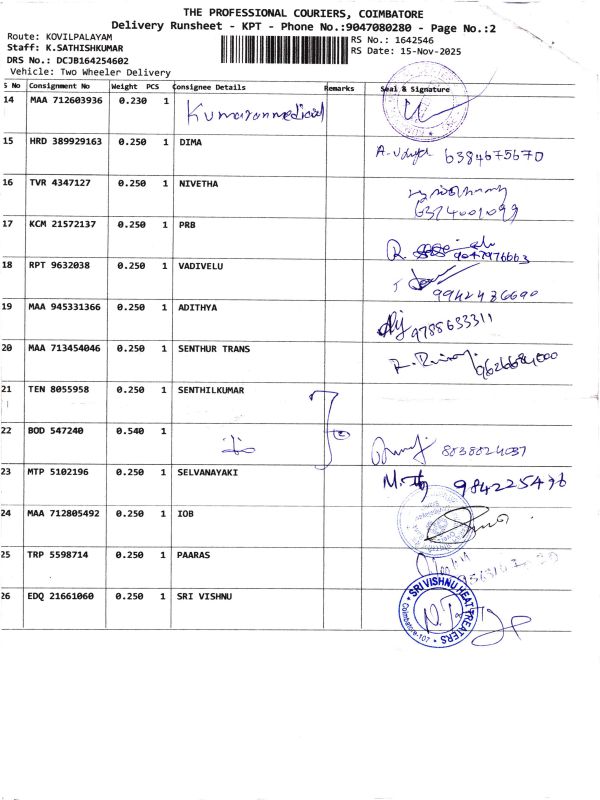 THE PROFESSIONAL COURIERS, COIMBATORE
Delivery Runsheet - KPT - Phone No.:9047080280 - Page No.:2
Route: KOVILPALAYAM
Staff: K.SATHISHKUMAR
DRS No.: DCJB164254602
Vehicle: Two Wheeler Delivery
RS No.: 1642546
RS Date: 15-Nov-2025
S No Consignment No Weight PCS Consignee Details Remarks Seal & Signature
14 MAA 712603936 0.230 1 Kumaran medical
15 HRD 389929163 0.250 1 DIMA 6384675670
16 TVR 4347127 0.250 1 NIVETHA
6374001099
17 KCM 21572137 0.250 1 PRB R.
9047976663
18 RPT 9632038 0.250 1 VADIVELU
9942486690
19 MAA 945331366 0.250 1 ADITHYA 9785633311
20 MAA 713454046 0.250 1 SENTHUR TRANS
21 TEN 8055958 0.250 1 SENTHILKUMAR
22 BOD 547240 0.540 1 8838824037
23 MTP 5102196 0.250 1 SELVANAYAKI
24 MAA 712805492 0.250 1 IOB
25 TRP 5598714 0.250 1 PAARAS
26 EDQ 21661060 0.250 1 SRI VISHNU
SRI VISHNU HEAT TREATERS
Coimbatore-107